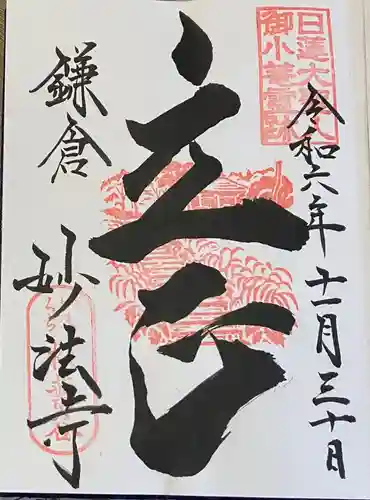 日蓮大聖人
御小菴霊跡
令和六年十一月三十日
立正
鎌倉
妙法寺